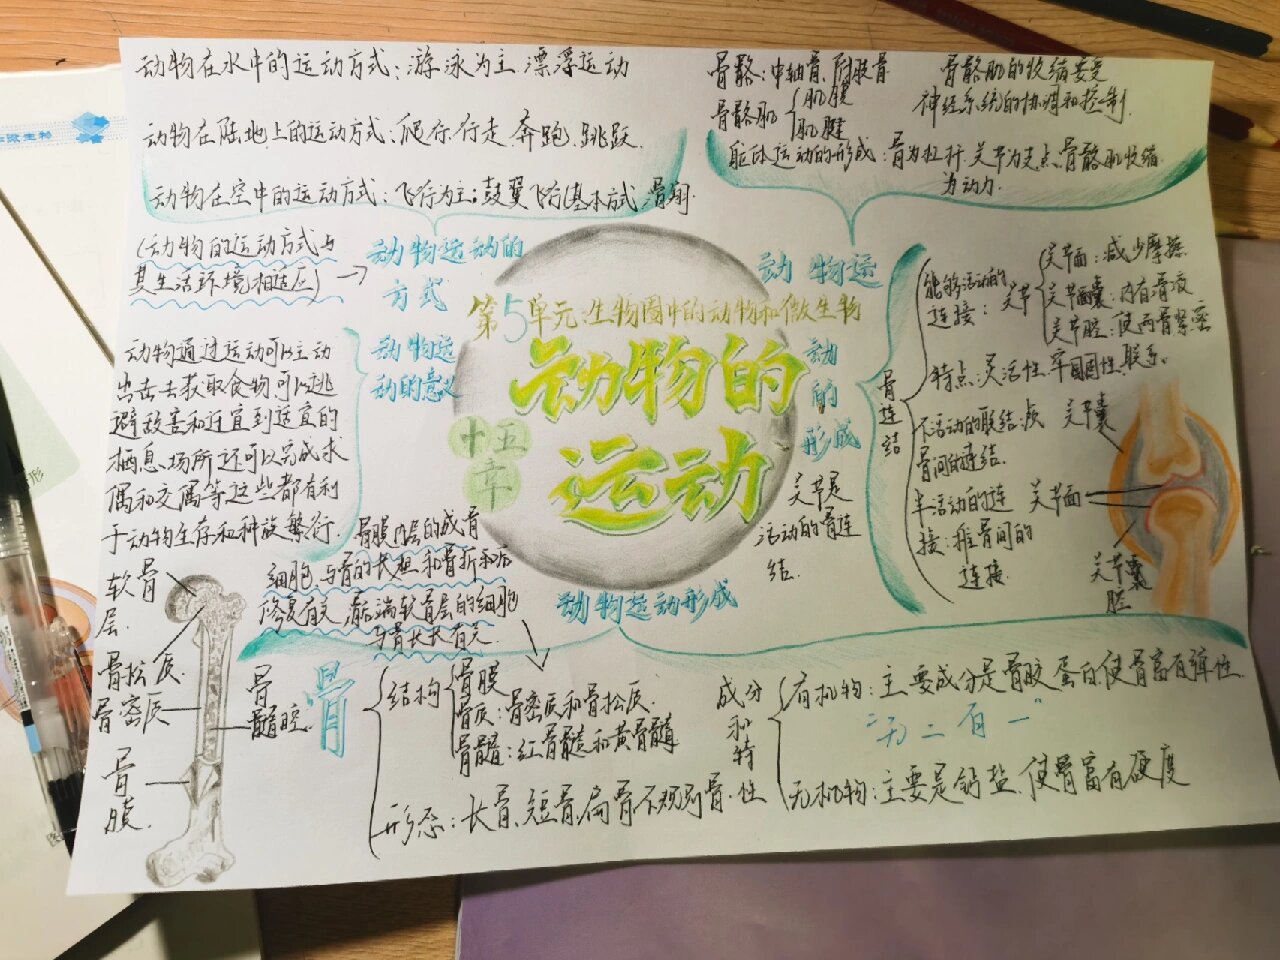 动物在水中的运动方式：游泳为主 漂浮运动
动物在陆地上的运动方式：爬行、行走、奔跑、跳跃
动物在空中的运动方式：飞行为主；鼓翼飞行(基本方式)滑翔
(动物的运动方式与
其生活环境相适应)
动物运动的
方式
动物通过运动可以主动
出击去获取食物可以逃
避敌害和迁宜到适宜的
栖息场所还可以完成求
偶和交属等这些都有利
于动物生存和种族繁衍.
动物运
动的意义
第5单元：生物圈中的动物和微生物
动物的
运动
十五
章
骨骼：中轴骨、附肢骨
骨骼肌
肌膜
肌腱
骨骼肌的收缩要受
神经系统的协调和控制.
躯体运动的形成：骨为杠杆、关节为支点、骨骼肌收缩
为动力.
动物运
动
的
形成
骨连结
能够活动的
连接：关节
关节面：减少摩擦
关节囊：内有滑液
关节腔：使两骨紧密
联系。
特点：灵活性、牢固性
不活动的联结：颅
骨间的连结.
半活动的连
接：椎骨间的
连接.
关节囊
关节面
关节囊
腔
关节是
活动的骨连
结.
骨膜内层的成骨
细胞、与骨的长粗和骨折和后
修复有关,骺端软骨层的细胞
与骨长长有关.
动物运动形成
软骨
层.
骨松质.
骨密质
骨
膜.
骨
髓腔
骨
结构
骨膜
骨质：骨密质和骨松质.
骨髓：红骨髓和黄骨髓
形态：长骨、短骨、扁骨不规则骨.
成分
和特
性
有机物：主要成分是骨胶蛋白,使骨富有弹性
“无二有一”
无机物：主要是钙盐、使骨富有硬度
微生物